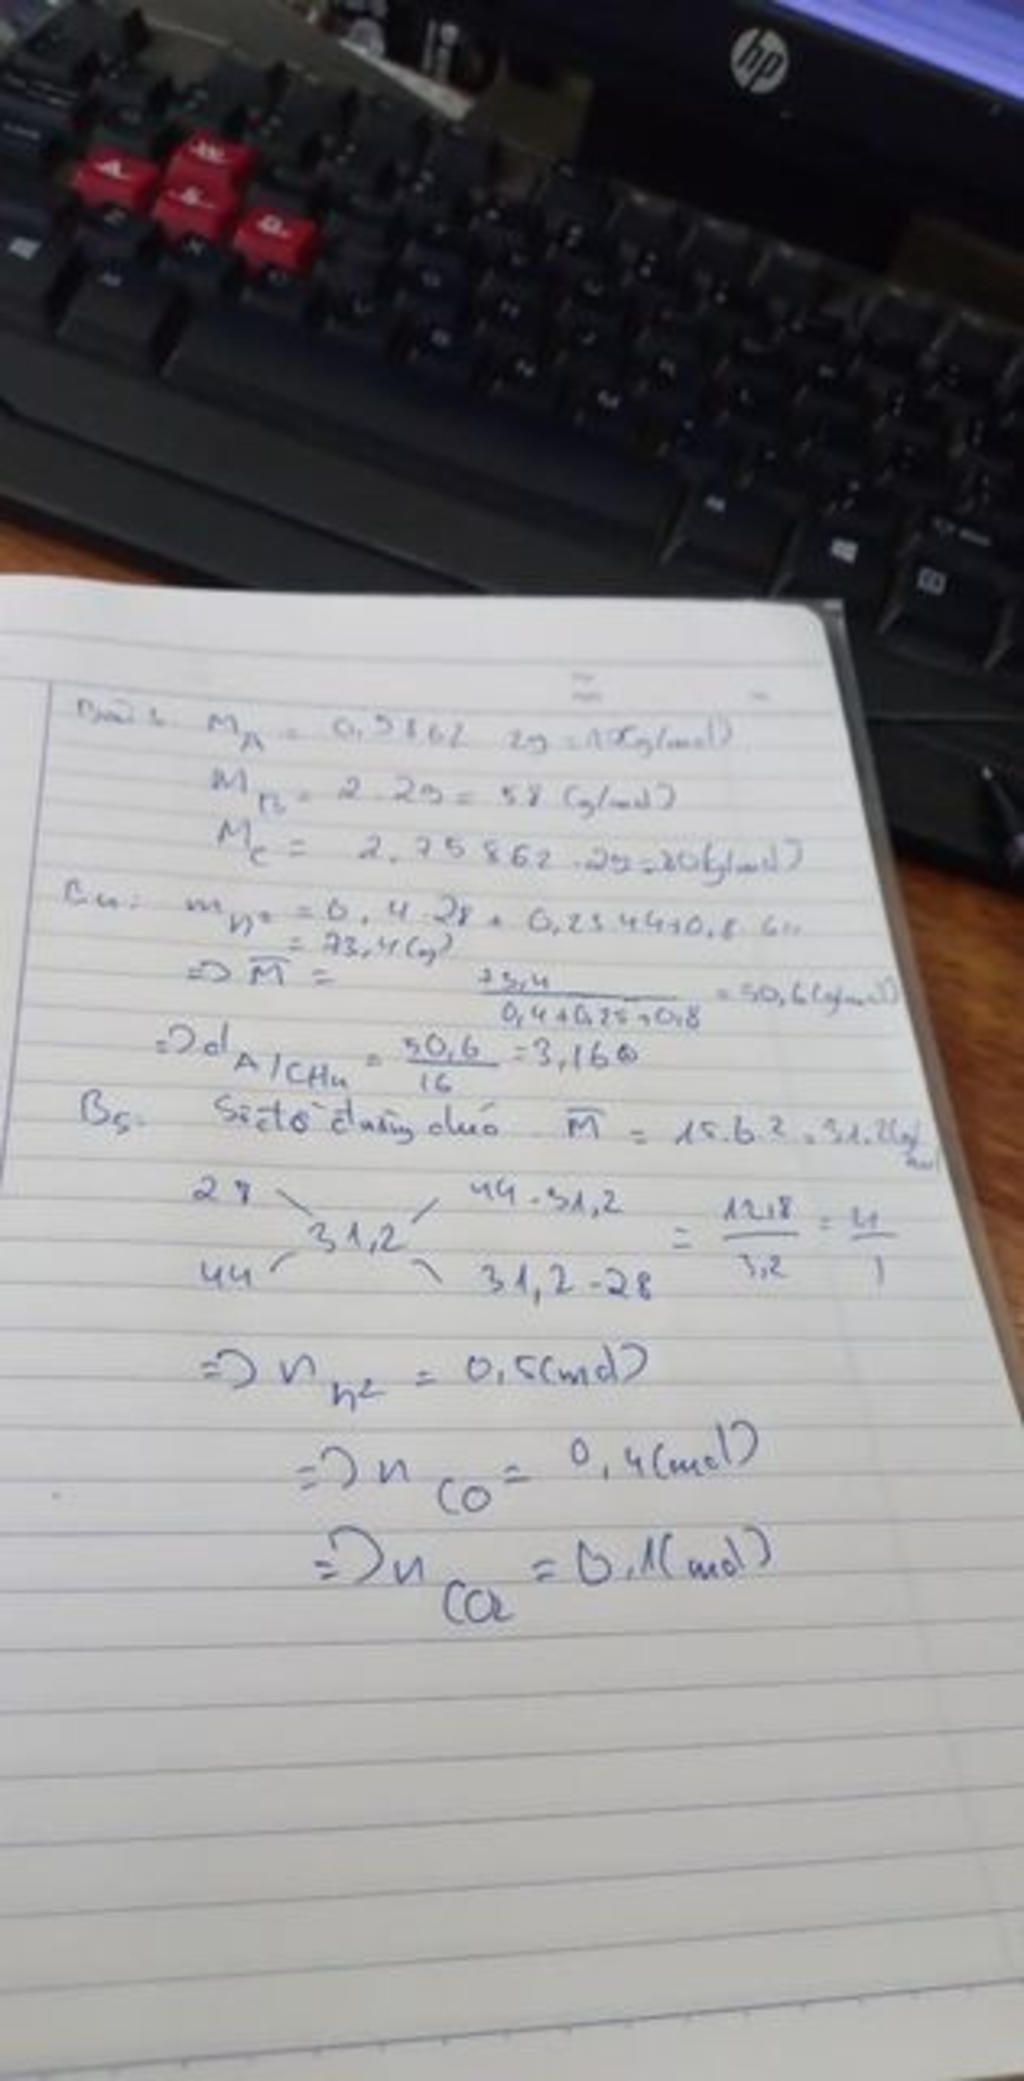 hp
W
A S D
M_A = 0,5862 29 = (g/mol)
M_B = 2.29 = 58 (g/mol)
M_C = 2,75862.29 = 80(g/mol)
B4: m_h² = 0,4.28 + 0,25.44+0,8.64
= 73,4(g)
=> M̅ = 73,4 / 0,4+0,25+0,8 = 50,6(g/mol)
=> d_A/CH4 = 50,6 / 16 = 3,16
B5: Sơ đồ đường chéo M̅ = 15.6.2 = 31.2(g/mol
28 44-31,2
31,2 = 12,8 / 3,2 = 4 / 1
44 31,2-28
=> n_h² = 0,5(mol)
=> n_CO = 0,4(mol)
=> n_CO2 = 0,1(mol)